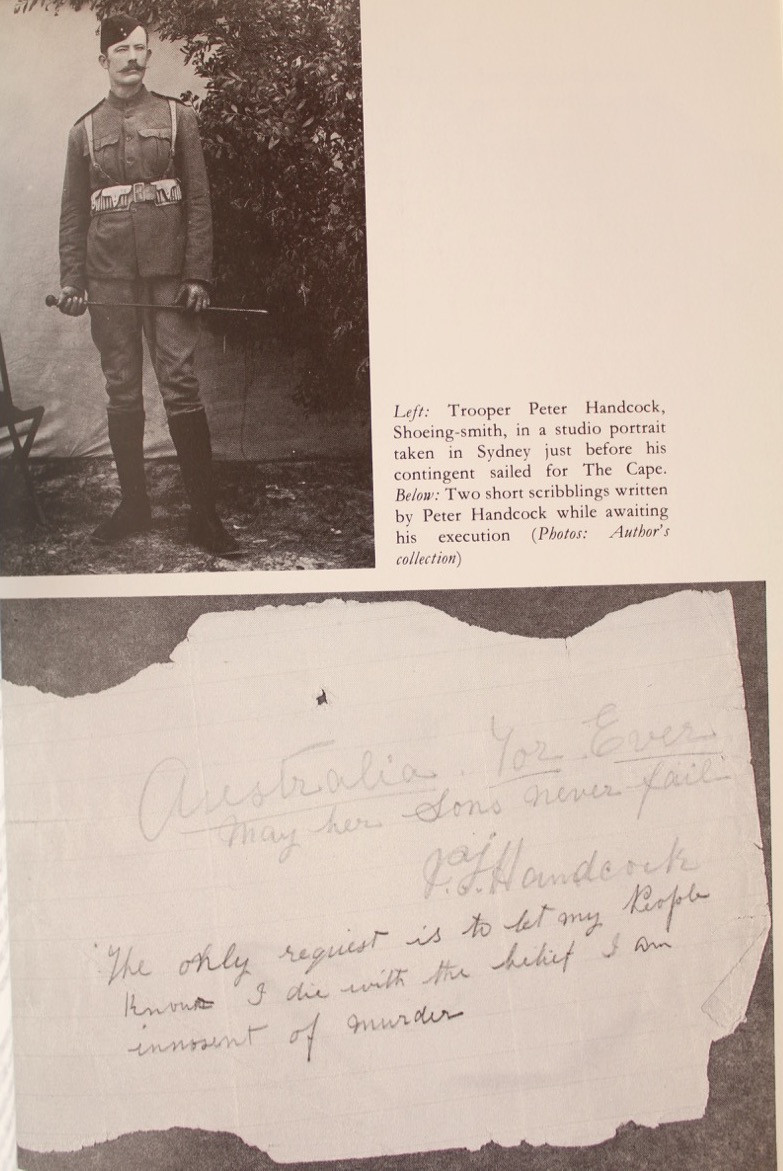 Left: Trooper Peter Handcock,
Shoeing-smith, in a studio portrait
taken in Sydney just before his
contingent sailed for The Cape.
Below: Two short scribblings written
by Peter Handcock while awaiting
his execution (Photos: Author's
collection)
Australia. For Ever
may her Sons never fail
P.J. Handcock
The only request is to let my People
Know I die with the belief I am
innosent of murder